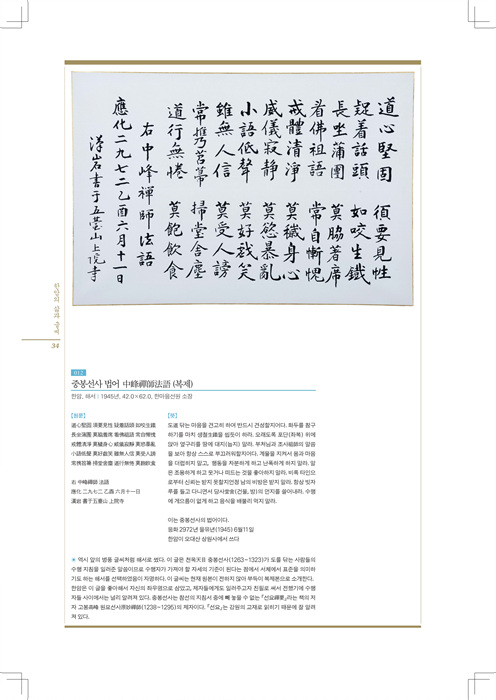 道心堅固 須要見性
疑着話頭 如咬生鐵
長坐蒲團 莫脇著席
看佛祖語 常自慚愧
戒體清淨 莫穢身心
威儀寂靜 莫恣暴亂
小語低聲 莫好戱笑
雖無人信 莫受人謗
常携苕菷 掃堂舍塵
道行無惓 莫飽飮食
右中峰禪師法語
應化二九七二乙酉六月十一日
漢岩書于五臺山上院寺
한암의 삶과 글씨
34
012
중봉선사 법어 中峰禪師法語 (복제)
한암, 해서 : 1945년, 42.0×62.0, 한마음선원 소장
[원문]
道心堅固 須要見性 疑着話頭 如咬生鐵
長坐蒲團 莫脇著席 看佛祖語 常自慚愧
戒體清淨 莫穢身心 威儀寂靜 莫恣暴亂
小語低聲 莫好戱笑 雖無人信 莫受人謗
常携苕菷 掃堂舍塵 道行無惓 莫飽飮食
右 中峰禪師 法語
應化 二九七二 乙酉 六月十一日
漢岩 書于五臺山 上院寺
[뜻]
도道 닦는 마음을 견고히 하여 반드시 견성할지어다. 화두를 참구
하기를 마치 생철生鐵을 씹듯이 하라. 오래도록 포단(좌복) 위에
앉아 옆구리를 땅에 대지(눕지) 말라. 부처님과 조사祖師의 말씀
을 보아 항상 스스로 부끄러워할지어다. 계율을 지켜서 몸과 마음
을 더럽히지 말고, 행동을 차분하게 하고 난폭하게 하지 말라. 말
은 조용하게 하고 웃거나 떠드는 것을 좋아하지 말라. 비록 타인으
로부터 신뢰는 받지 못할지언정 남의 비방은 받지 말라. 항상 빗자
루를 들고 다니면서 당사堂舍(건물, 방)의 먼지를 쓸어내라. 수행
에 게으름이 없게 하고 음식을 배불리 먹지 말라.
이는 중봉선사의 법어이다.
응화 2972년 을유년(1945) 6월 11일
한암이 오대산 상원사에서 쓰다
* 역시 앞의 병풍 글씨처럼 해서로 썼다. 이 글은 천목天目 중봉선사(1263~1323)가 도를 닦는 사람들의
수행 지침을 일러준 말씀이므로 수행자가 가져야 할 자세의 기준이 된다는 점에서 서체에서 표준을 의미하
기도 하는 해서를 선택하였음이 자명하다. 이 글씨는 현재 원본이 전하지 않아 부득이 복제본으로 소개한다.
한암은 이 글을 좋아해서 자신의 좌우명으로 삼았고, 제자들에게도 일러주고자 친필로 써서 전했기에 수행
자들 사이에서는 널리 알려져 있다. 중봉선사는 참선의 지침서 중에 빼 놓을 수 없는 『선요禪要』라는 책의 저
자 고봉高峰 원묘선사原妙禪師(1238~1295)의 제자이다. 『선요』는 강원의 교재로 읽히기 때문에 잘 알려
져 있다.